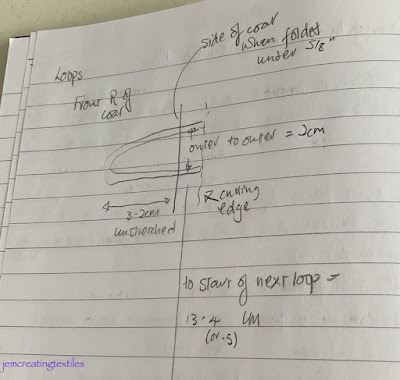 Loops
from R of
coat
side of coat
when folded
under 5/8"
outer to outer = 2cm
3.2cm
unstretched
cutting
edge
to start of next loop =
13.4 cm
(or .5)
jemcreatingtextiles